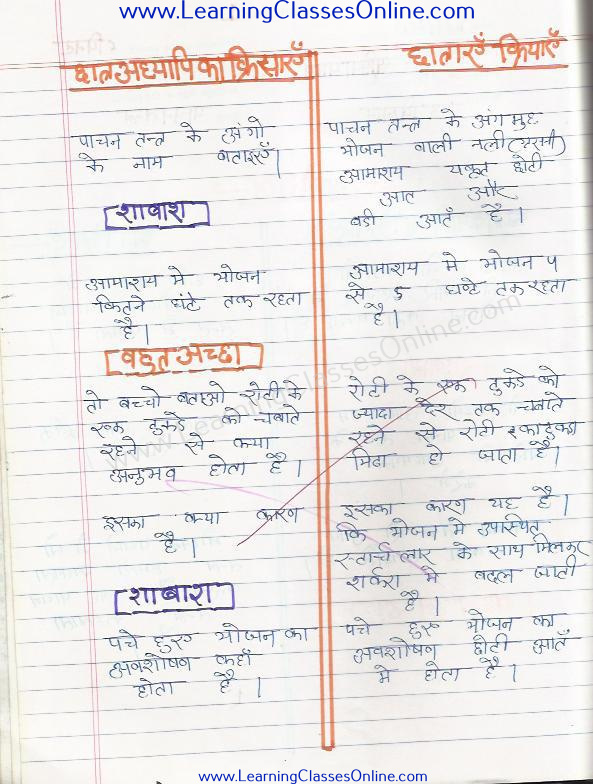 www.LearningClassesOnline.com
छात्रअध्यापिका क्रियाएँ
पाचन तन्त्र के अंगो
के नाम बताइएँ।
शाबाश
आमाशय मे भोजन
कितने घंटे तक रहता
है।
बहुत अच्छा
तो बच्चो बताओ रोटी के
एक टुकडे को चबाते
रहने से क्या
अनुभव होता है।
इसका क्या कारण
है।
शाबाश
पचे हुए भोजन का
अवशोषण कहाँ
होता है।
छात्राएँ क्रियाएँ
पाचन तन्त्र के अंग मुह
भोजन वाली नली
आमाशय यकृत छोटी
आत और
बडी आतँ है।
आमाशय मे भोजन
से 5 घण्टे तक रहता
है।
रोटी के एक टुकडे को
ज्यादा देर तक चबाते
रहने से रोटी का टुकडा
मिठा हो जाता है।
इसका कारण यह है।
कि भोजन मे उपस्थित
स्तार्च लार के साथ मिलकर
शर्करा मे बदल जाती
है।
पचे हुए भोजन का
अवशोषण छोटी आतँ
मे होता है।
www.LearningClassesOnline.com
www.LearningClassesOnline.com